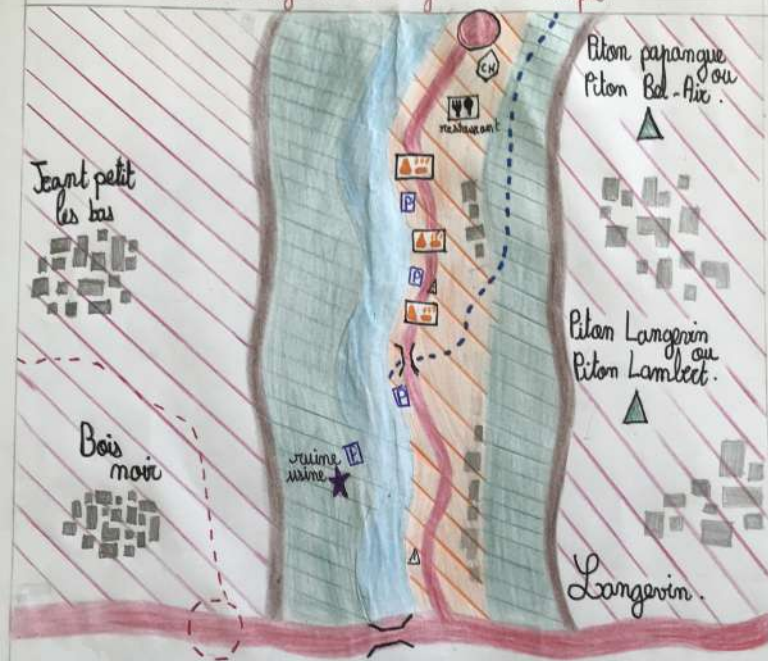 Piton papangue
ou
Piton Bel-Air.
CH
restaurant
P
Jeant petit
les bas
P
Piton Langevin
ou
Piton Lambert.
P
Bois
noir
ruine
usine
P
Langevin.